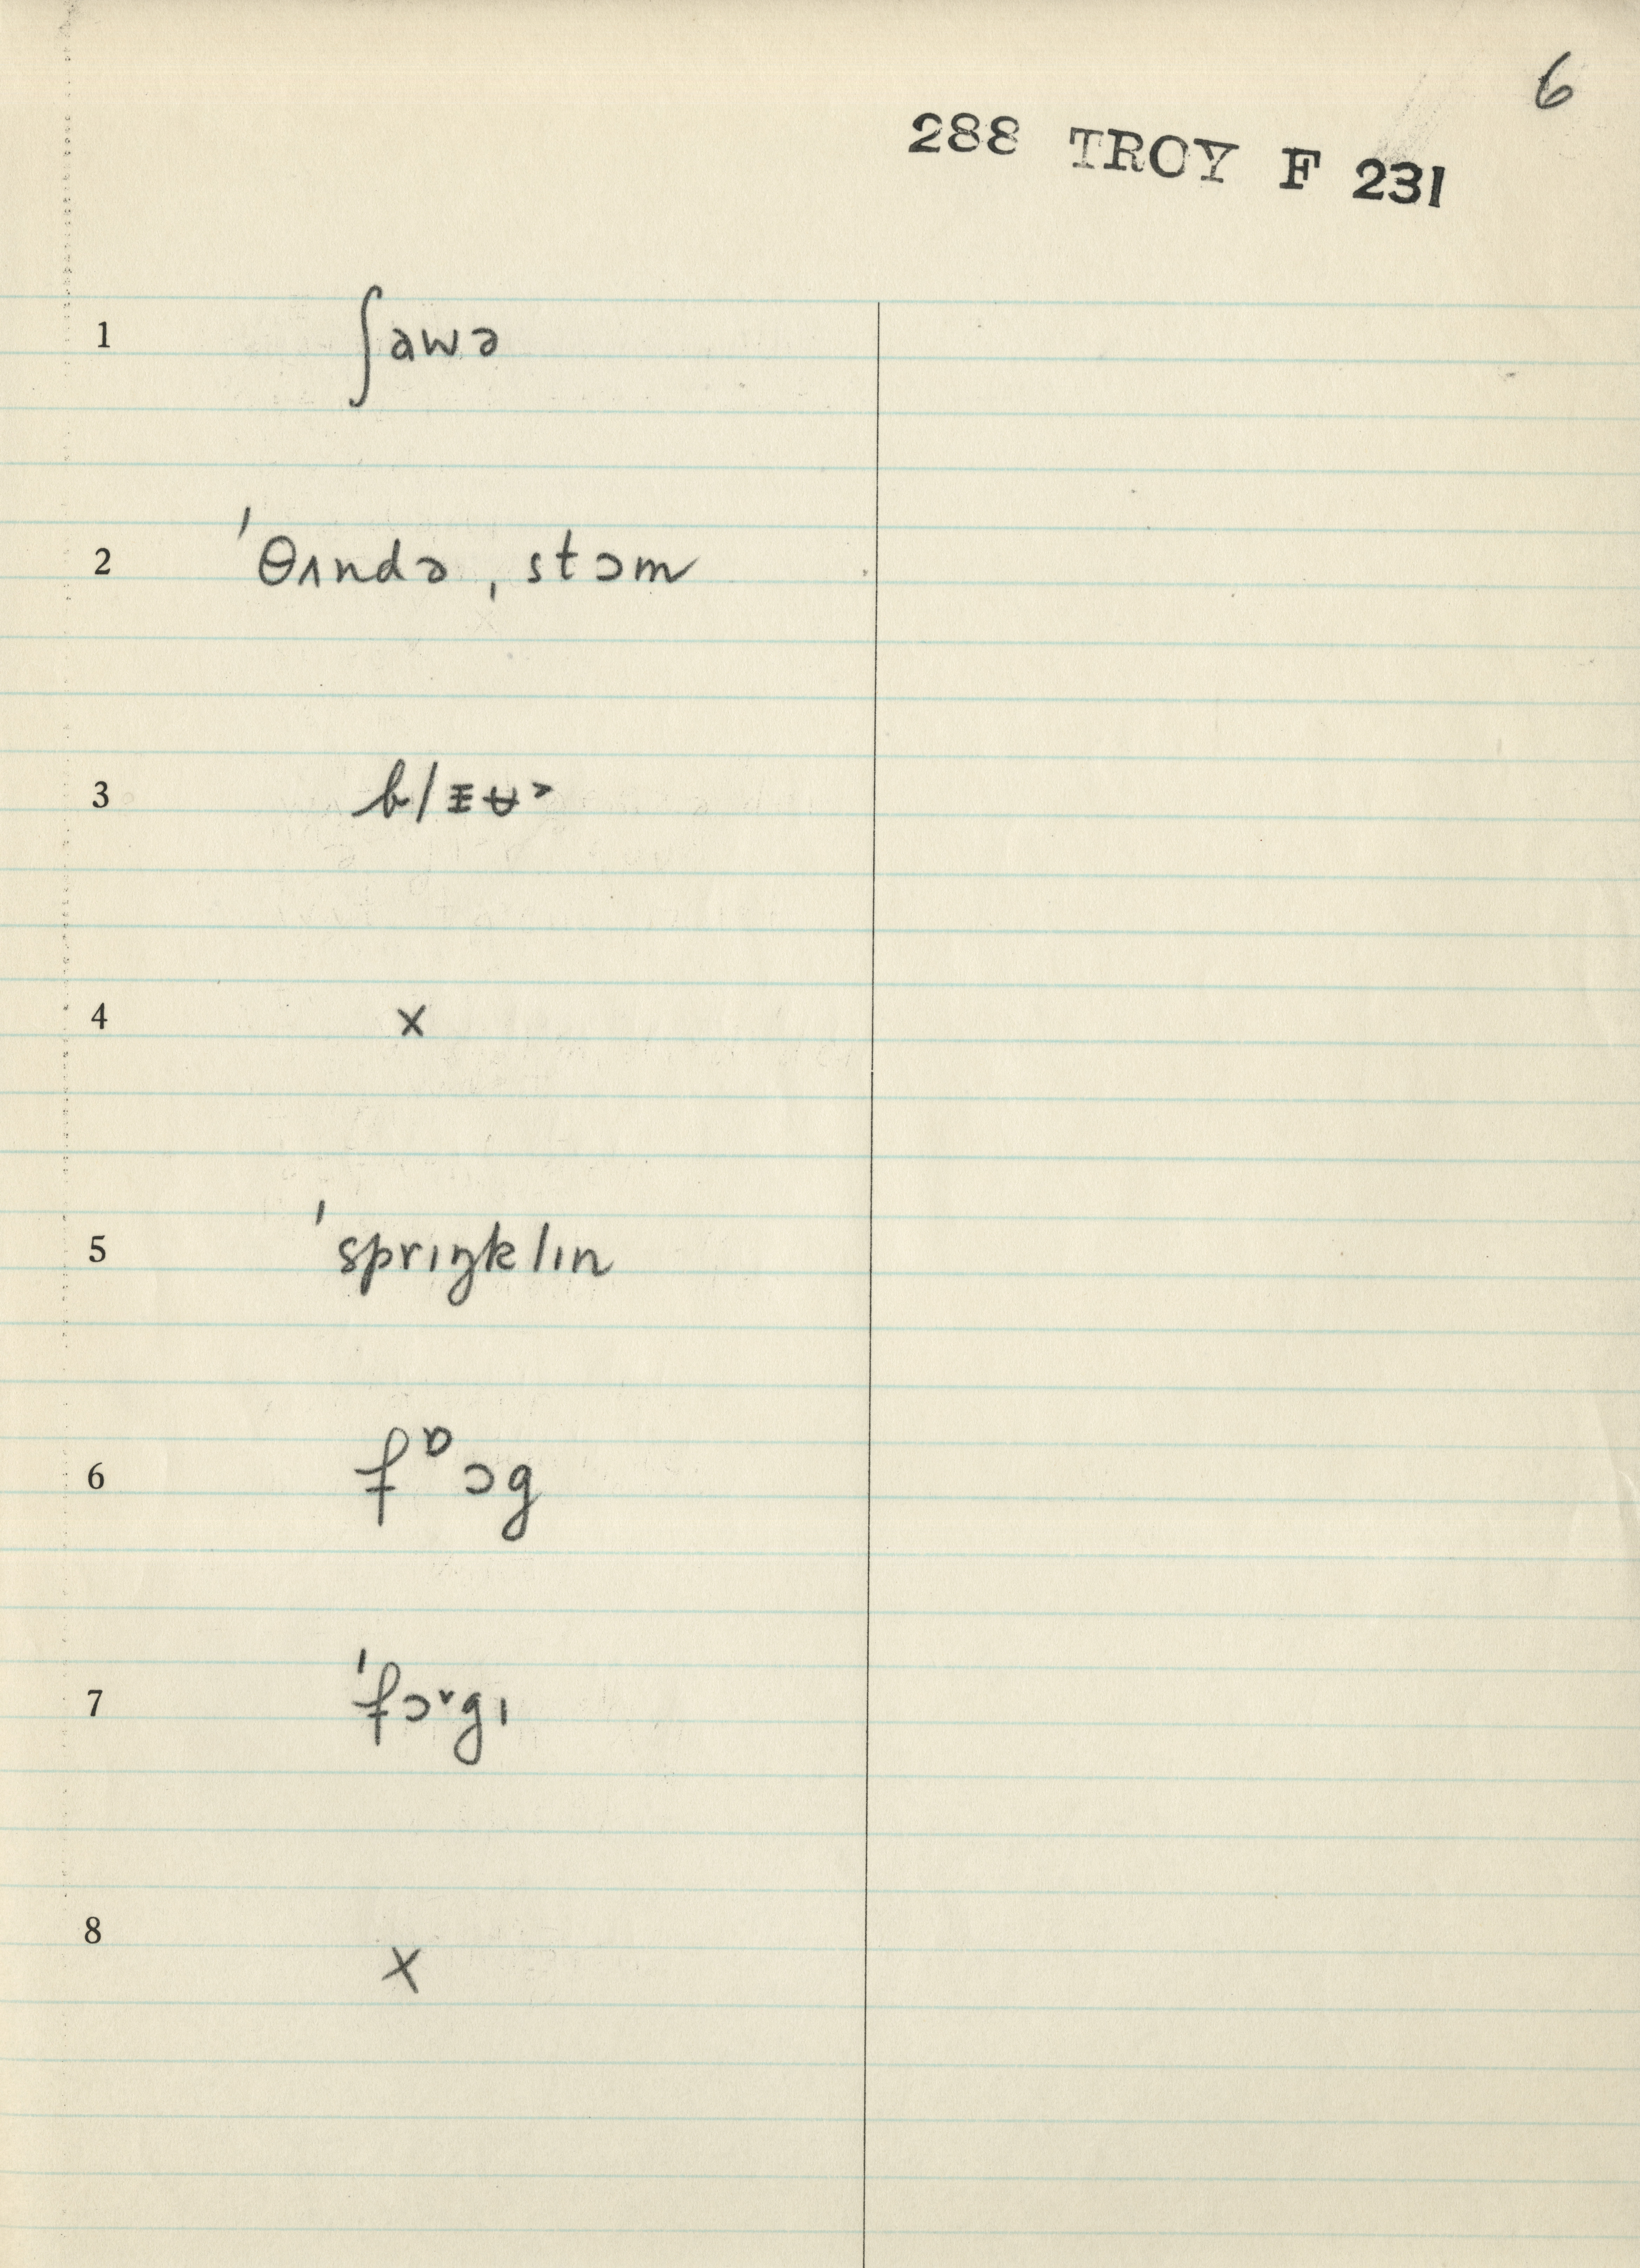 6
288 TROY F 231
1 ʃawə
2 ˈθʌndə ˌstɔm
3
4 x
5 ˈsprɪŋklɪn
6 fᶛɔg
7 ˈfɔᵛgɪ
8 x